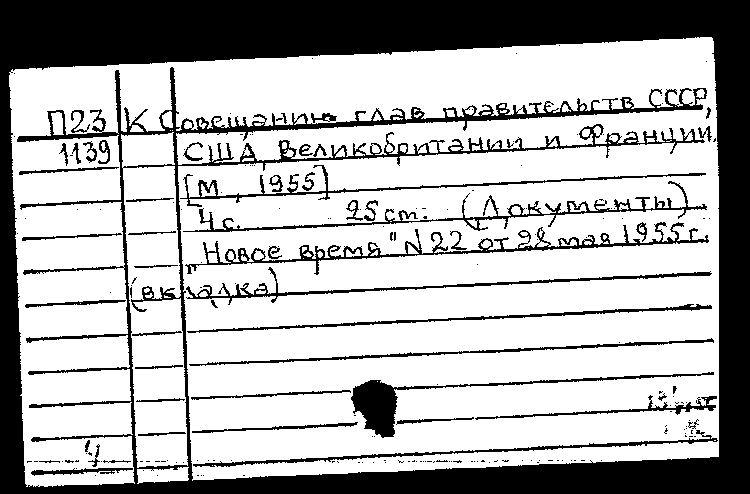 П23 К Совещанию глав правительств СССР,
1139 США, Великобритании и Франции.
[М., 1955]
4 с. 25 см. (Документы).
"Новое время" N22 от 28 мая 1955 г.
(вкладка)
4